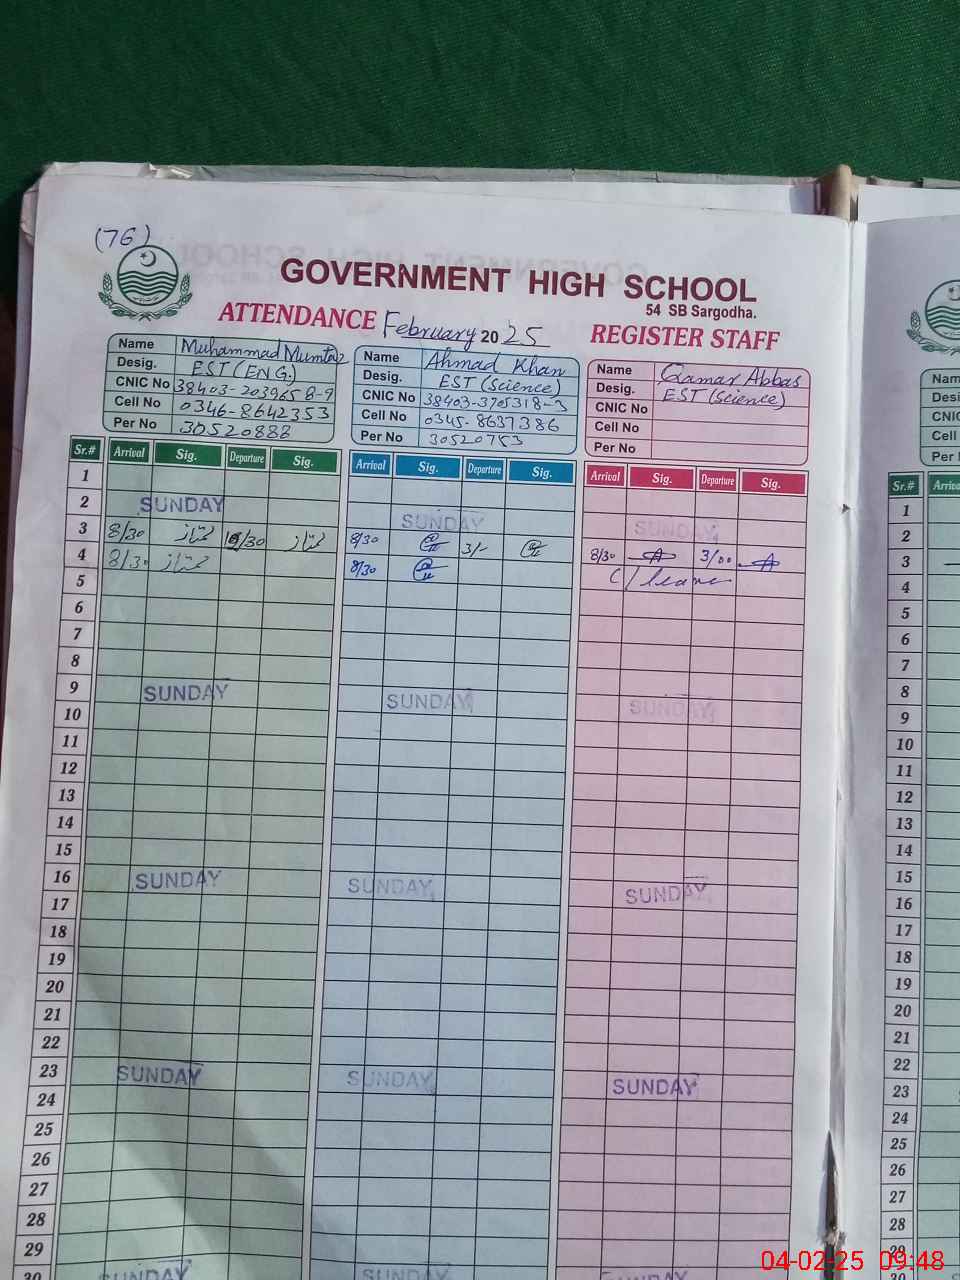 (76)
GOVERNMENT HIGH SCHOOL
54 SB Sargodha.
ATTENDANCE February 2025 REGISTER STAFF
Name Muhammad Mumtaz
Desig. EST (ENG.)
CNIC No 38403-2039658-9
Cell No 0346-8642353
Per No 30520888
Name Ahmad Khan
Desig. EST (Science)
CNIC No 38403-3705318-3
Cell No 0345-8637386
Per No 30520753
Name Qamar Abbas
Desig. EST (Science)
CNIC No
Cell No
Per No
Sr.# Arrival Sig. Departure Sig. Arrival Sig. Departure Sig. Arrival Sig. Departure Sig.
1
2 SUNDAY SUNDAY SUNDAY
3 8/30 ممتاز /30 ممتاز 8/30 3/- 8/30 3/00
4 8/30 ممتاز 8/30 C/leave
5
6
7
8
9 SUNDAY SUNDAY SUNDAY
10
11
12
13
14
15
16 SUNDAY SUNDAY SUNDAY
17
18
19
20
21
22
23 SUNDAY SUNDAY SUNDAY
24
25
26
27
28
29
30 SUNDAY SUNDAY SUNDAY
Nam
Desi
CNIC
Cell
Per
Sr.# Arriva
1
2
3
4
5
6
7
8
9
10
11
12
13
14
15
16
17
18
19
20
21
22
23
24
25
26
27
28
29
30
04-02-25 09:48